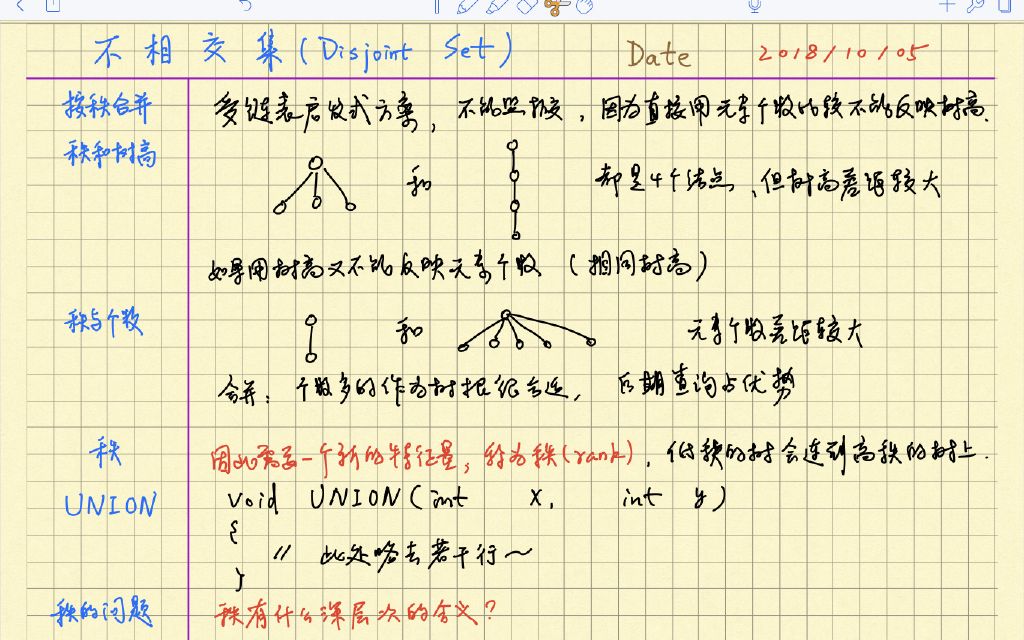 不相交集(Disjoint Set) Date 2018/10/05
按秩合并 受链表启发式方案,不能照搬,因为直接用元素个数的较不能反映树高.
秩和树高
和 都是4个结点,但树高差距较大
如果用树高又不能反映元素个数(相同树高)
秩与个数 和 元素个数差距较大
合并:个数多的作为树根很合适,后期查询占优势
秩 因此需要一个新的特征量,称为秩(rank),低秩的树会连到高秩的树上.
UNION void UNION(int x, int y)
{
// 此处略去若干行~
}
秩的问题 秩有什么深层次的含义?